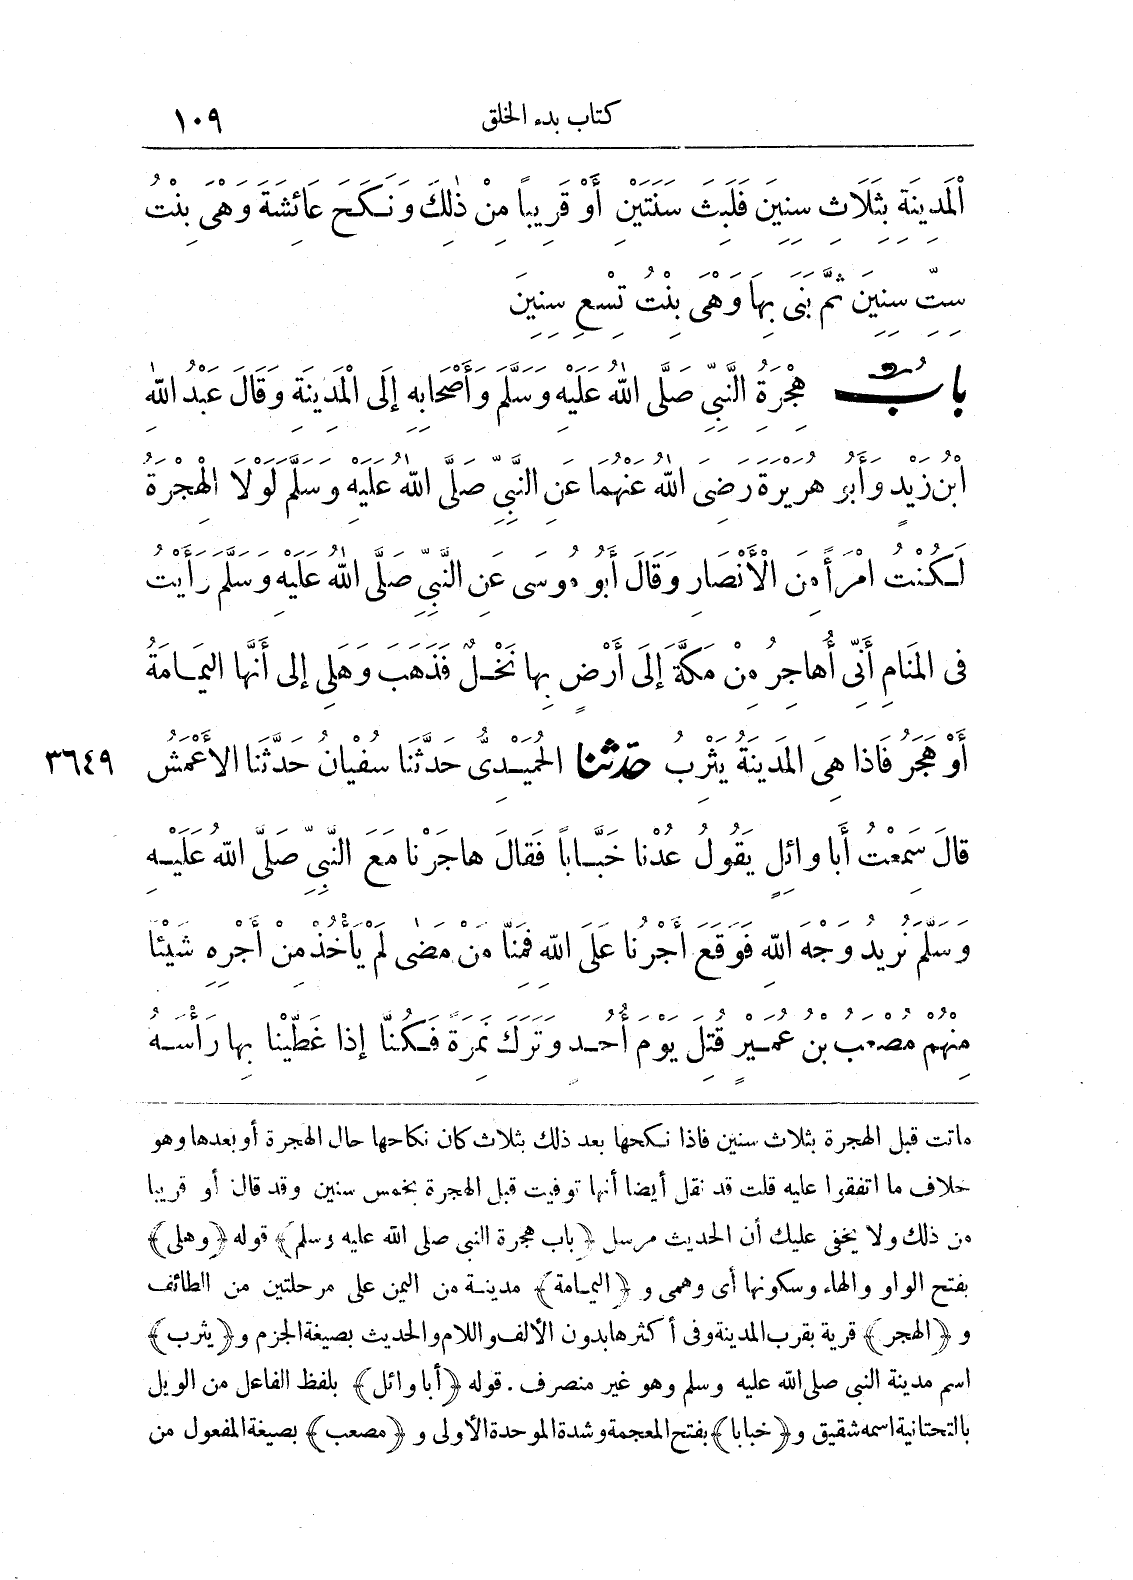 كتاب بدء الخلق ١٠٩
الْمَدِينَةِ بِثَلَاثِ سِنِينَ فَلَبِثَ سَنَتَيْنِ أَوْ قَرِيباً مِنْ ذٰلِكَ وَنَكَحَ عَائِشَةَ وَهْىَ بِنْتُ
سِتِّ سِنِينَ ثُمَّ بَنَى بِهَا وَهْىَ بِنْتُ تِسْعِ سِنِينَ
بابُ هِجْرَةُ النَّبِىِّ صَلَّى اللهُ عَلَيْهِ وَسَلَّمَ وَأَصْحَابِهِ إِلَى الْمَدِينَةِ وَقَالَ عَبْدُ اللهِ
ابْنُ زَيْدٍ وَأَبُو هُرَيْرَةَ رَضِىَ اللهُ عَنْهُمَا عَنِ النَّبِىِّ صَلَّى اللهُ عَلَيْهِ وَسَلَّمَ لَوْلَا الْهِجْرَةُ
لَكُنْتُ امْرَأً مِنَ الْأَنْصَارِ وَقَالَ أَبُو مُوسَى عَنِ النَّبِىِّ صَلَّى اللهُ عَلَيْهِ وَسَلَّمَ رَأَيْتُ
فى المَنَامِ أَنِّى أُهاجِرُ مِنْ مَكَّةَ إِلَى أَرْضٍ بِهَا نَخْلٌ فَذَهَبَ وَهَلِى إلى أَنَّهَا اليَمَامَةُ
أَوْ هَجَرُ فَاذا هِىَ المَدِينَةُ يَثْرِبُ حَدّثنا الحُمَيْدِىُّ حَدَّثَنَا سُفْيَانُ حَدَّثَنَا الأَعْمَشُ ٣٦٤٩
قالَ سَمِعْتُ أَبا وائِلٍ يَقُولُ عُدْنا خَبَّاباً فَقالَ هاجَرْنا مَعَ النَّبِىِّ صَلَّى اللهُ عَلَيْهِ
وَسَلَّمَ نُرِيدُ وَجْهَ اللهِ فَوَقَعَ أَجْرُنا عَلَى اللهِ فَمِنَّا مَنْ مَضٰى لَمْ يَأْخُذْ مِنْ أَجْرِهِ شَيْئاً
مِنْهُمْ مُصْعَبُ بْنُ عُمَيْرٍ قُتِلَ يَوْمَ أُحُدٍ وَتَرَكَ نَمِرَةً فَكُنَّا إِذا غَطَّيْنا بِها رَأْسَهُ
ماتت قبل الهجرة بثلاث سنين فاذا نكحها بعد ذلك بثلاث كان نكاحها حال الهجرة أو بعدها وهو
خلاف ما اتفقوا عليه قلت قد نقل أيضا أنها توفيت قبل الهجرة بخمس سنين وقد قال أو قريبا
من ذلك ولا يخفى عليك أن الحديث مرسل ﴿باب هجرة النبى صلى الله عليه وسلم﴾ قوله ﴿وهلى﴾
بفتح الواو والهاء وسكونها أى وهمى و ﴿اليمامة﴾ مدينة من اليمن على مرحلتين من الطائف
و ﴿الهجر﴾ قرية بقرب المدينة وفى أكثرها بدون الألف واللام والحديث بصيغة الجزم و ﴿يثرب﴾
اسم مدينة النبى صلى الله عليه وسلم وهو غير منصرف . قوله ﴿أبا وائل﴾ بلفظ الفاعل من الويل
بالتحتانية اسمه شقيق و ﴿خبابا﴾ بفتح المعجمة وشدة الموحدة الأولى و ﴿مصعب﴾ بصيغة المفعول من